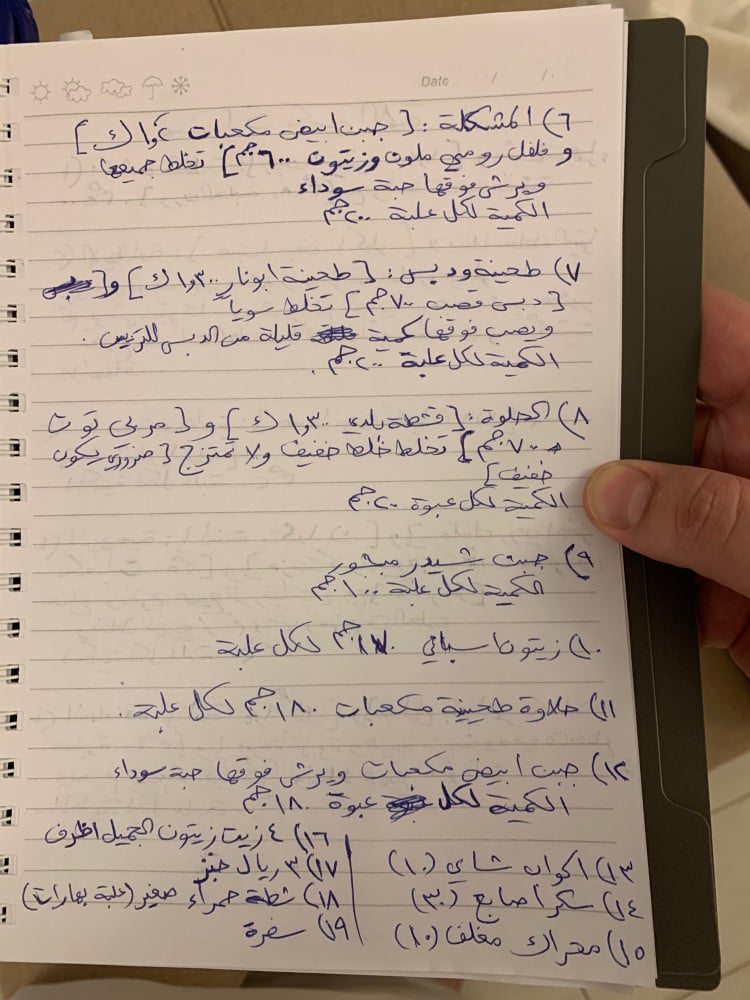 Date / /.
٦) المشكلة: [جبن ابيض مكعبات ٢و١ ك]
و فلفل رومي ملون وزيتون ٦٠٠ جم] تخلط جميعها
ويرش فوقها حبة سوداء
الكمية لكل علبة ٢٠٠ جم
٧) طحينة ودبس: [طحينة ابونار ٣٠٠و١ ك] و[
[دبس قصب ٧٠٠ جم] تخلط سوياً
ويصب فوقها كمية قليلة من الدبس للتزيين.
الكمية لكل علبة ٢٠٠ جم.
٨) الحلوة: [قشطة بلدي ٣٠٠و١ ك] و [مربى توت
٧٠٠ جم] تخلط خلط خفيف ولا تمتزج [ضروري يكون
خفيف]
الكمية لكل عبوة ٢٠٠ جم
٩) جبن شيدر مبشور
الكمية لكل علبة ١٠٠ جم
١٠) زيتون اسباني جم لكل علبة
١١) حلاوة طحينية مكعبات ١٨٠ جم لكل علبة.
١٢) جبن ابيض مكعبات ويرش فوقها حبة سوداء
الكمية لكل عبوة ١٨٠ جم
١٣) اكواب شاي (١٠)
١٤) سكر اصابع (٣٠)
١٥) محراك مغلف (١٠)
١٦) ٤ زيت زيتون الجميل اظرف
١٧) ٣ ريال خبز
١٨) شطة حمراء صغير (علبة بهارات)
١٩) سفرة